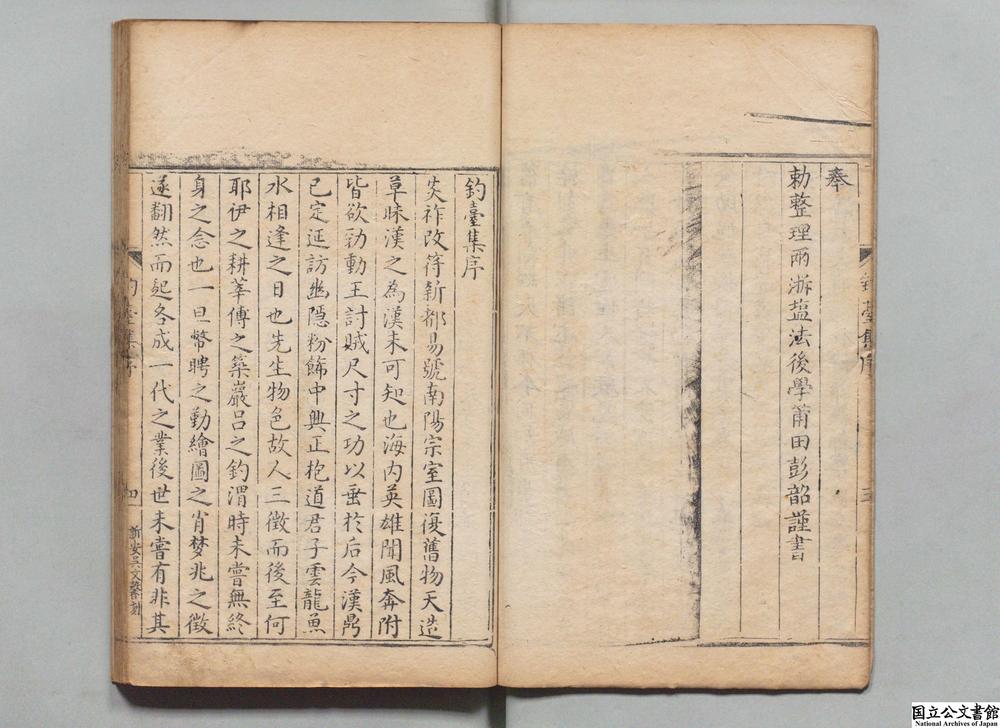 奉
勅整理兩浙塩法後學莆田彭韶謹書
釣臺集序
釣臺集序
炎祚改符新都易號南陽宗室圖復舊物天造
草昧漢之為漢未可知也海内英雄聞風奔附
皆欲効勤王討賊尺寸之功以垂於后今漢鼎
已定延訪幽隱粉餙中興正枹道君子雲龍魚
水相逢之日也先生物色故人三徵而後至何
耶伊之耕莘傅之築巖呂之釣渭時未嘗無終
身之念也一旦幣聘之勤繪圖之肖夢兆之徵
遂翻然而起各成一代之業後世未嘗有非其
釣臺集序
四
新安吳文
刻
国立公文書館
National Archives of Japan